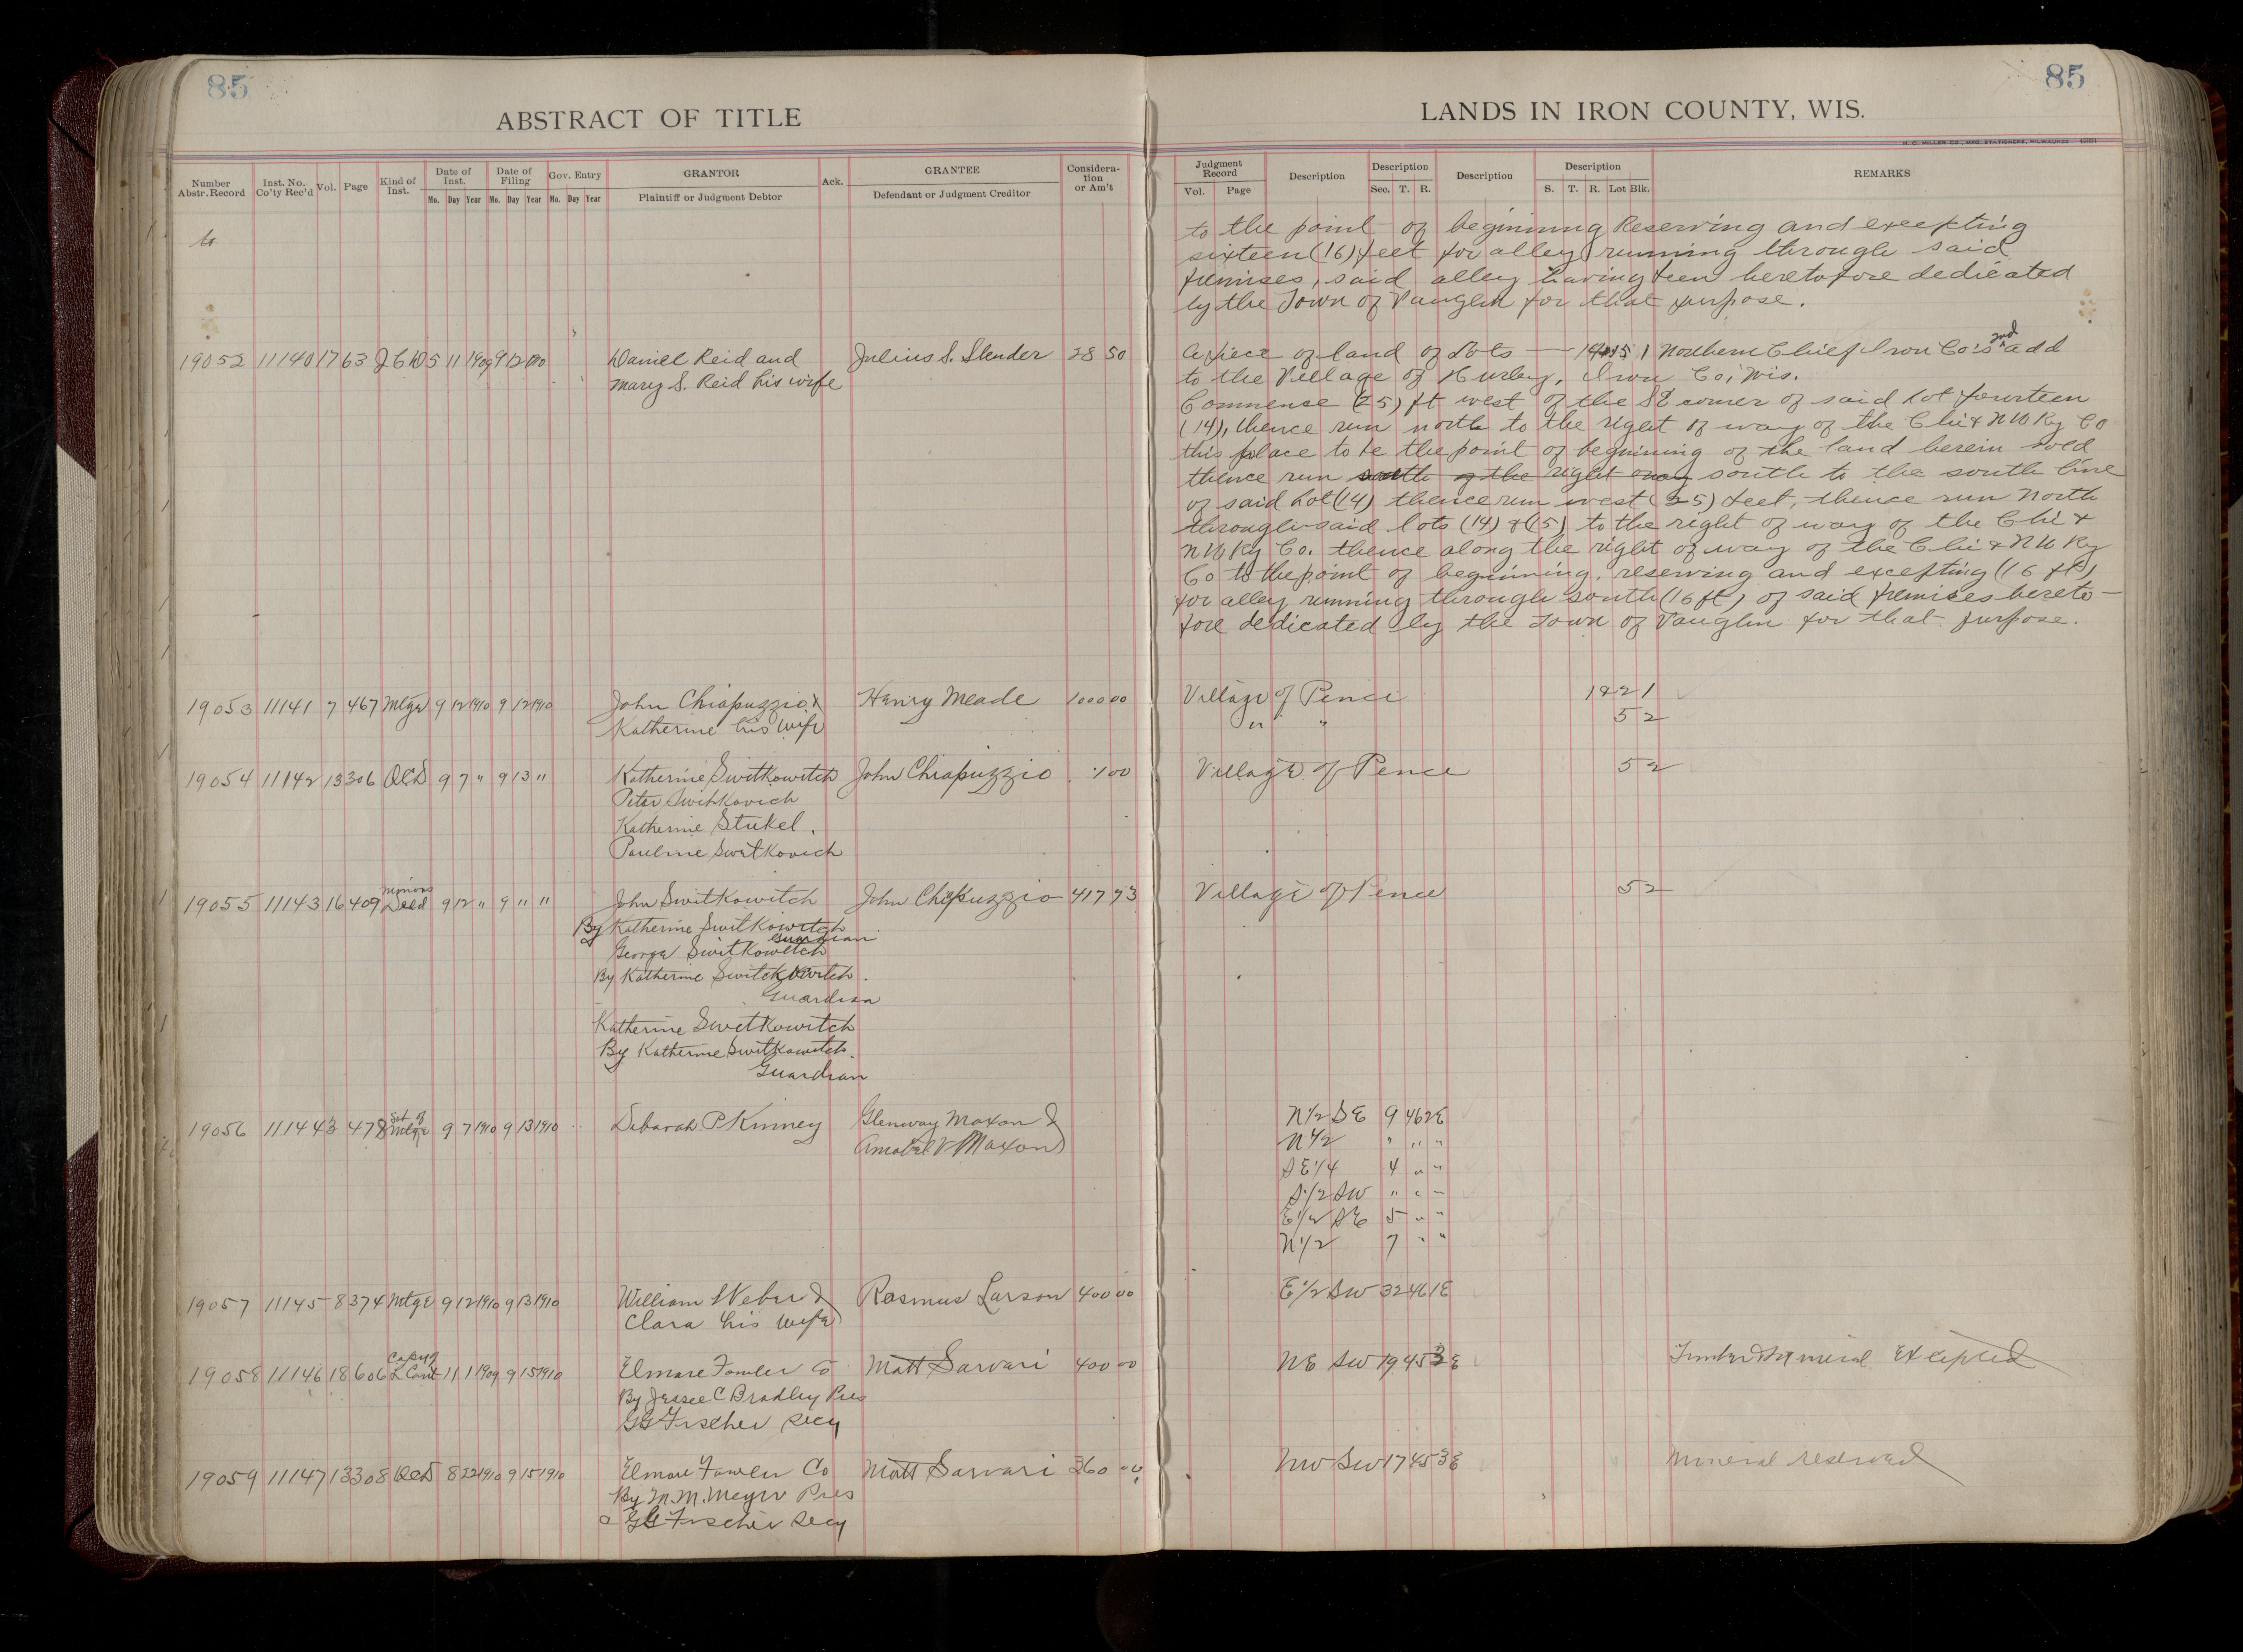 85
85
ABSTRACT OF TITLE
LANDS IN IRON COUNTY, WIS.
H. C. MILLER CO., MFG. STATIONERS, MILWAUKEE
Number Abstr. Record | Inst. No. Co'ty Rec'd | Vol. | Page | Kind of Inst. | Date of Inst. Mo. Day Year | Date of Filing Mo. Day Year | Gov. Entry Mo. Day Year | GRANTOR Plaintiff or Judgment Debtor | Ack. | GRANTEE Defendant or Judgment Creditor | Considera-tion or Am't | Judgment Record Vol. Page | Description | Description Sec. T. R. | Description | Description S. T. R. Lot Blk. | REMARKS
to
to the point of beginning Reserving and excepting
sixteen (16) feet for alley running through said
premises, said alley having been heretofore dedicated
by the Town of Vaughn for that purpose.
19052 11140 17 63 5 11 1909 9 12 1910 Daniel Reid and Julius S. Slender 28 50 A piece of land of Lots — 14+15 1 Northern Chief Iron Co's 2nd add
Mary S. Reid his wife to the Village of Hurley, Iron Co, Wis.
Commence (25) ft west of the SE corner of said Lot fourteen
(14), thence run north to the right of way of the Chi & N W Ry Co
this place to be the point of beginning of the land herein sold
thence run south of the right way south to the south line
of said Lot (14) thence run west (25) feet, thence run North
through said lots (14) & (15) to the right of way of the Chi &
N W Ry Co. thence along the right of way of the Chi & N W Ry
Co to the point of beginning, reserving and excepting (16 ft)
for alley running through south (16 ft) of said premises hereto-
fore dedicated by the Town of Vaughn for that purpose.
19053 11141 7 467 Mtge 9 12 1910 9 12 1910 John Chiapuzzio & Henry Meade 1000 00 Village of Pence 1&2 1
Katherine his wife " " 5 2
19054 11142 13 306 QCD 9 7 " 9 13 " Katherine Switkowitch John Chiapuzzio 1 00 Village of Pence 5 2
Peter Switkovich
Katherine Stukel.
Pauline Switkovich
19055 11143 16 409 Minors Deed 9 12 " 9 " " John Switkowitch John Chiapuzzio 417 73 Village of Pence 5 2
By Katherine Switkowitch
Guardian
George Switkowitch
By Katherine Switchkowitch.
Guardian
Katherine Switkowitch
By Katherine Switkowitch.
Guardian
19056 11144 3 478 Sat of Mtge 9 7 1910 9 13 1910 Deborah P Kinney Glenway Maxon & N1/2 SE 9 46 2E
Amabel V Maxon N1/2 " " "
SE1/4 4 " "
S1/2 SW " " "
E1/2 SE 5 " "
N1/2 7 " "
19057 11145 8 374 Mtge 9 12 1910 9 13 1910 William Weber & Rasmus Larson 400 00 E1/2 SW 32 46 1E
Clara his wife
19058 11146 18 606 Copy of L Cont 11 1 1909 9 15 1910 Elmore Fowler Co Matt Sarvari 400 00 NE SW 19 45 3E Timber & Mineral Excepted
By Jessee C Bradley Pres
GG Fischer Secy
19059 11147 13 308 8 22 1910 9 15 1910 Elmore Fowler Co Matt Sarvari 360 00 NW SW 17 45 3E Mineral reserved
By M. M. Meyer Pres
GG Fischer Secy